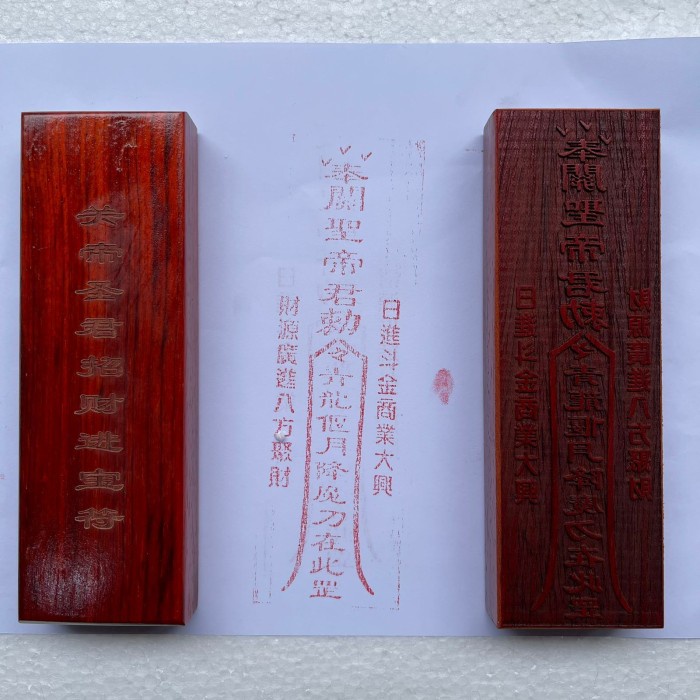 关帝圣君招财进宝符
日進斗金商業大興
奉關聖帝君勅令青龍偃月降魔刀在此罡
財源廣進八方聚財
財源廣進八方聚財
奉關聖帝君勅令青龍偃月降魔刀在此罡
日進斗金商業大興